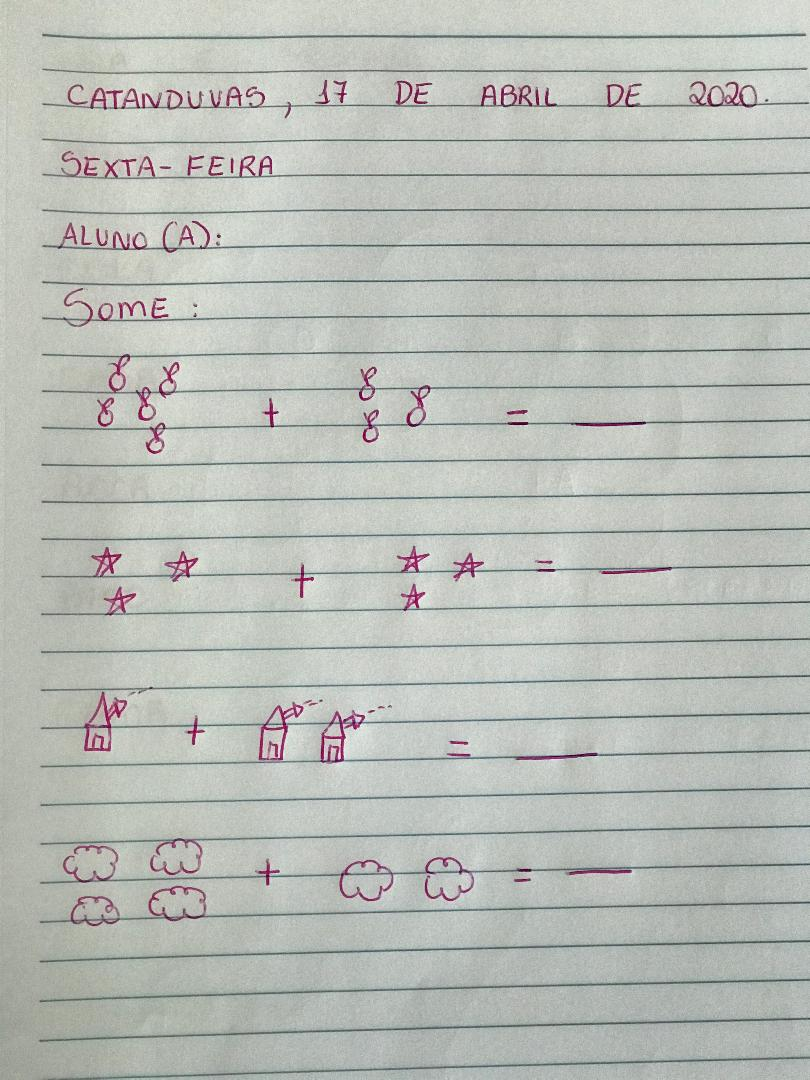 CATANDUVAS, 17 DE ABRIL DE 2020.
SEXTA-FEIRA
ALUNO (A):
SOME :
+ = ___
+ = ___
+ = ___
+ = ___